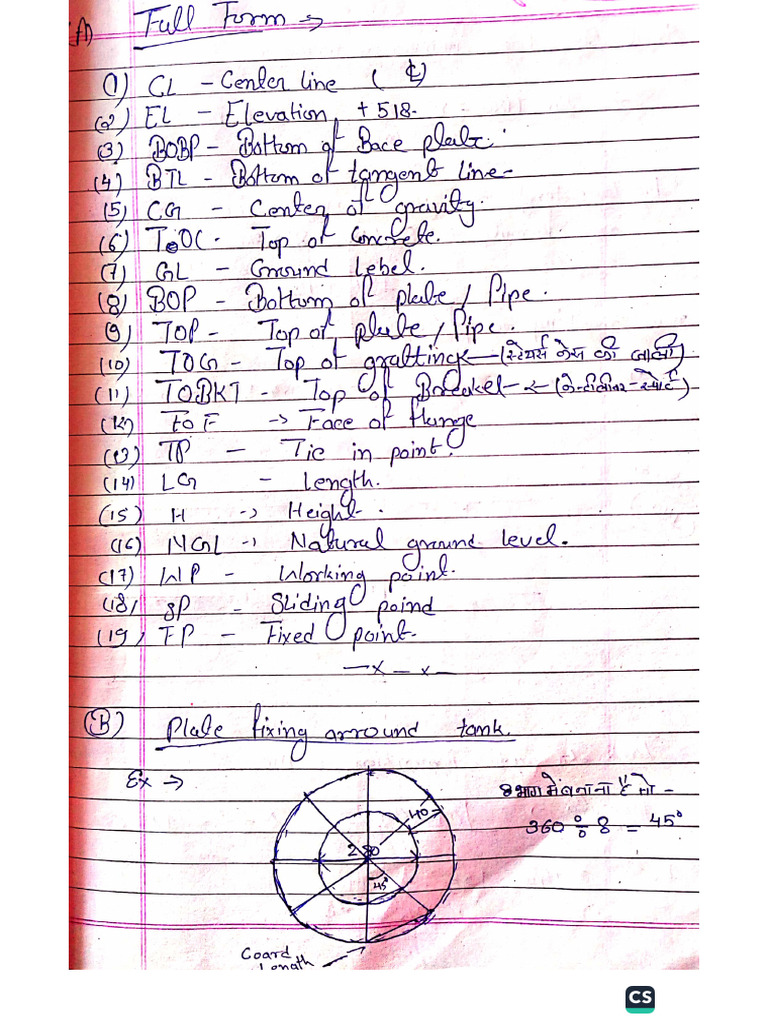 (A) Full Form →
(1) CL - Center line ( ℄ )
(2) EL - Elevation, + 518-
(3) BOBP - Bottum of Bace plate.
(4) BTL - Bottom of tangent line-
(5) CG - Center of gravity.
(6) TOOC - Top of Concrete.
(7) GL - Ground Lebel.
(8) BOP - Bottum of plate / Pipe.
(9) TOP - Top of, plate / Pipe.
(10) TOG - Top of grattinck - (स्टेयर्स केस की जाली)
(11) TO.BKT - Top of Breakel - <- (केन्टीलीवर-स्पोर्ट)
(12) FOF -> Face of flange
(13) TP - Tie in point.
(14) LG - Length.
(15) H -> Height.
(16) NGL -> Natural ground level.
(17) WP - Working point.
(18) SP - Sliding poind
(19) FP - Fixed point-
-x-x-
(B) Plate fixing arround tank.
Ex →
8 भाग में बनाना है तो -
360 ÷ 8 = 45°
40
280
45°
Coard
Length
CS